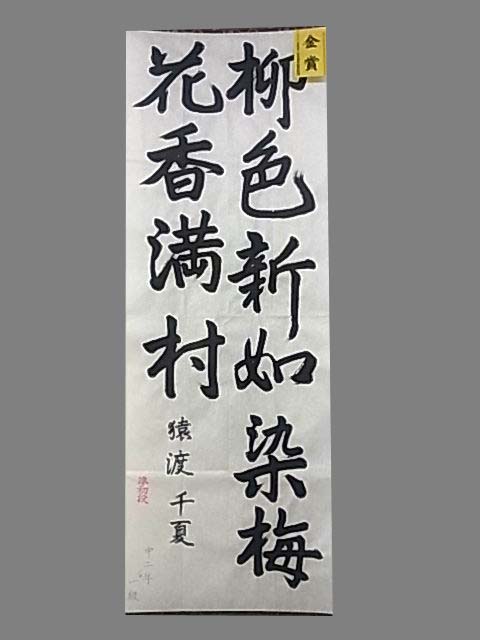 金賞
柳色新如染梅
花香満村
猿渡千夏
準初段
中二年
一級